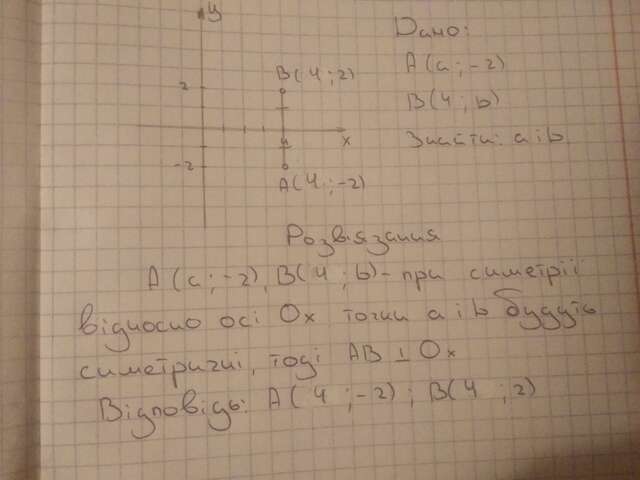 y
Дано:
B(4;2)
A(a;-2)
2
B(4;b)
x
Знайти: a i b
4
-2
A(4;-2)
Розвізання
A(a;-2), B(4;b)-при симетріі
відносно осі Ox точки a i b будуть
симетричні, тоді AB ⊥ Ox
Відповідь: A(4;-2); B(4;2)